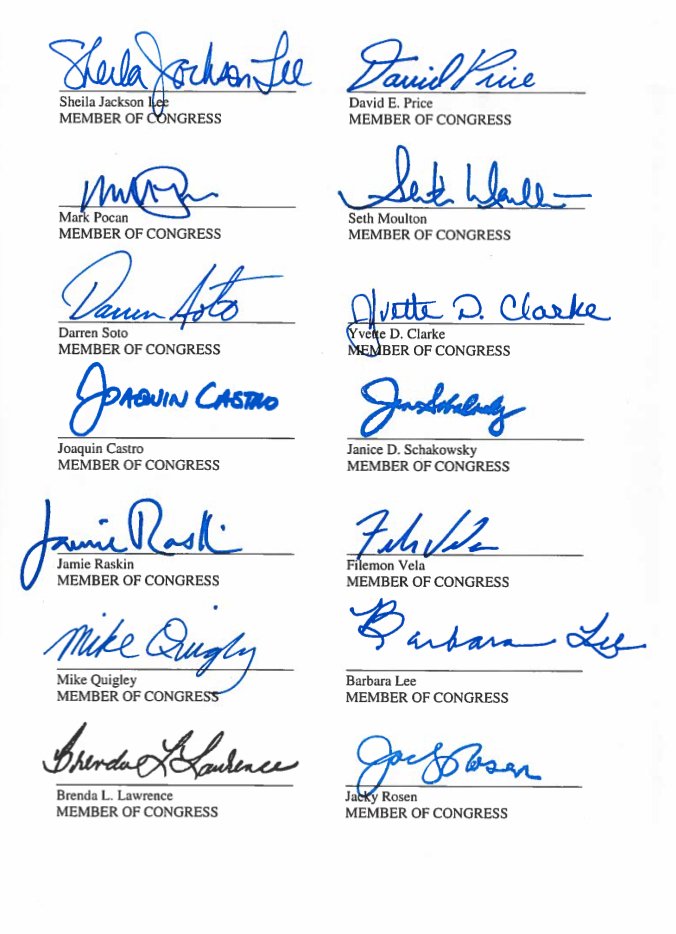 Sheila Jackson Lee David Price
Sheila Jackson Lee David E. Price
MEMBER OF CONGRESS MEMBER OF CONGRESS
Seth Moulton
Mark Pocan Seth Moulton
MEMBER OF CONGRESS MEMBER OF CONGRESS
Darren Soto Yvette D. Clarke
Darren Soto Yvette D. Clarke
MEMBER OF CONGRESS MEMBER OF CONGRESS
JOAQUIN CASTRO
Joaquin Castro Janice D. Schakowsky
MEMBER OF CONGRESS MEMBER OF CONGRESS
Jamie Raskin
Jamie Raskin Filemon Vela
MEMBER OF CONGRESS MEMBER OF CONGRESS
Mike Quigley Barbara Lee
Mike Quigley Barbara Lee
MEMBER OF CONGRESS MEMBER OF CONGRESS
Brenda L Lawrence Jacky Rosen
Brenda L. Lawrence Jacky Rosen
MEMBER OF CONGRESS MEMBER OF CONGRESS